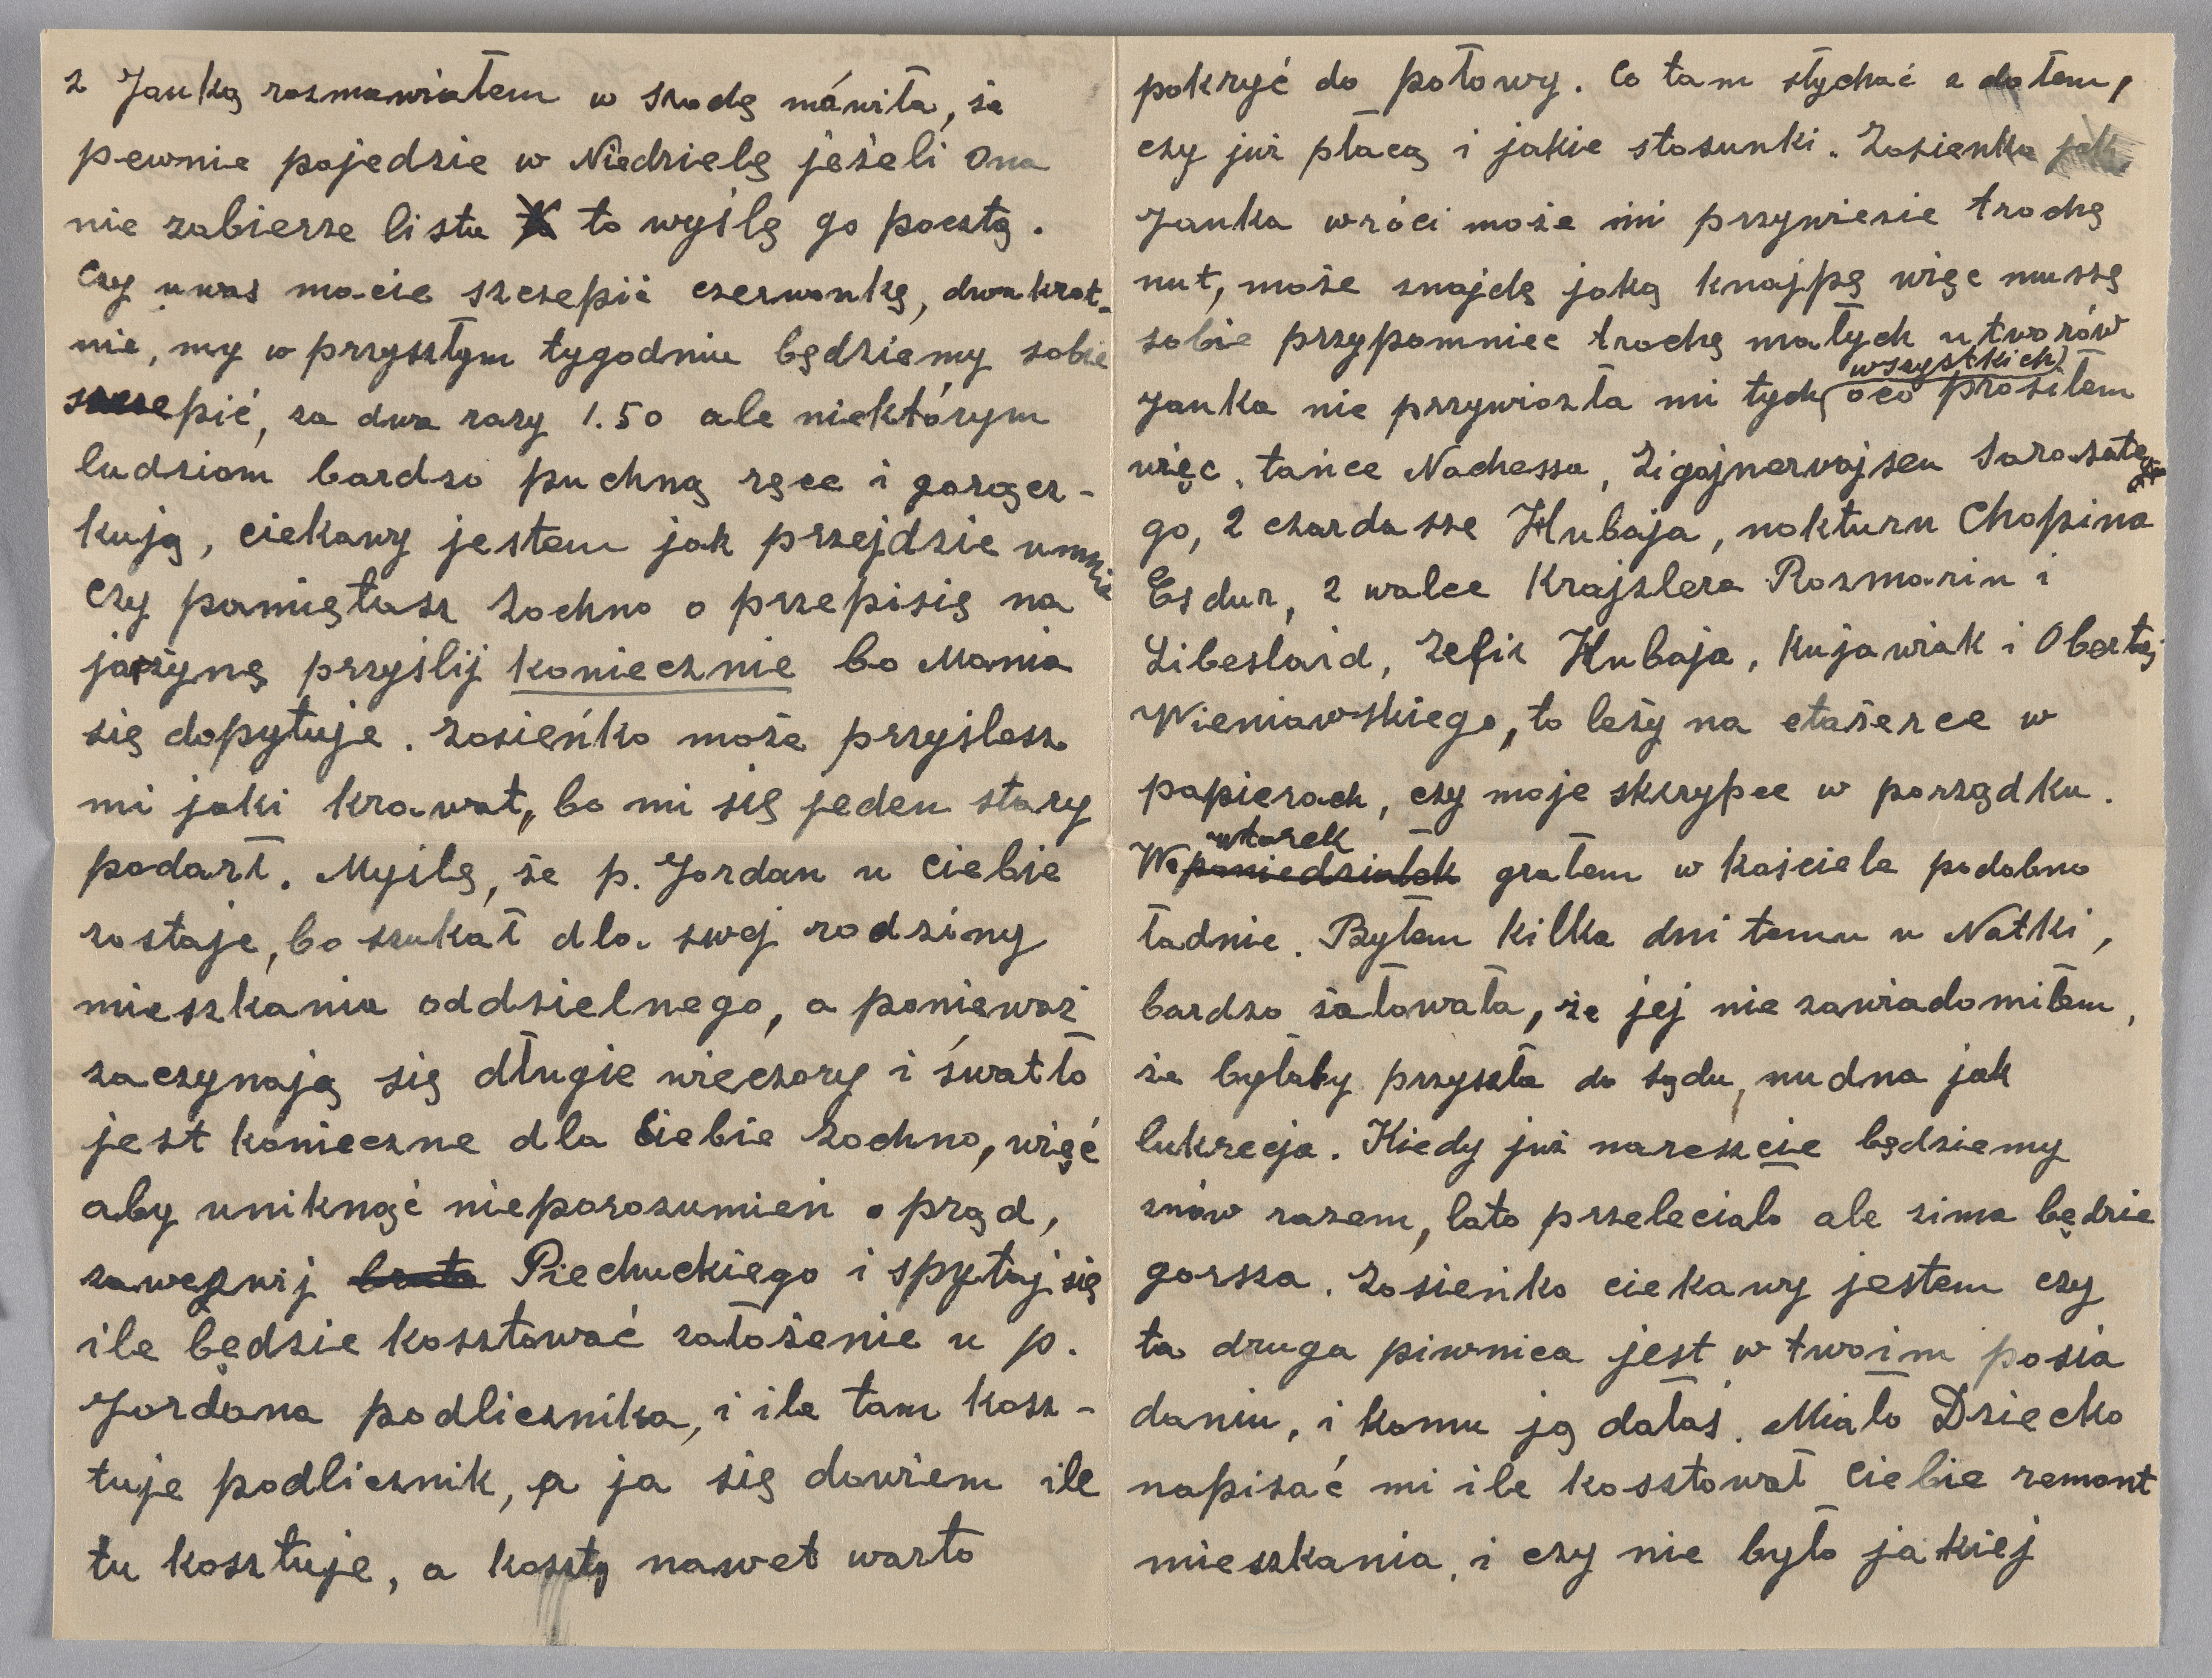 z Janką rozmawiałem w środę mówiła, że
pewnie pojedzie w Niedzielę jeżeli ona
nie zabierze listu to wyślę go pocztą.
Czy u was macie szczepić czerwonkę, dwukrot-
nie, my w przyszłym tygodniu będziemy sobie
szczepić, za dwa razy 1.50 ale niektórym
ludziom bardzo puchną ręce i gorącz-
kują, ciekawy jestem jak przejdzie u mnie
Czy pamiętasz Zochno o przepisię na
jarzynę przyślij koniecznie bo Mania
się dopytuje. Zosieńko może przyślesz
mi jaki krawat, bo mi się jeden stary
podarł. Myślę, że p. Jordan u Ciebie
zostaje, bo szukał dla swej rodziny
mieszkania oddzielnego, a ponieważ
zaczynają się długie wieczory i światło
jest konieczne dla Ciebie Zochno, więć
aby uniknąć nieporozumień o prąd,
zawezwij brata Piechuckiego i spytaj się
ile będzie kosztować założenie u p.
Jordana podlicznika, i ile tam kosz-
tuje podlicznik, a ja się dowiem ile
tu kosztuje, a koszty nawet warto
pokryć do połowy. Co tam słychać z dołem,
czy już płacą i jakie stosunki. Zosienka jak
Janka wróci może mi przywiezie trochę
nut, może znajdę jaką knajpę więc muszę
sobie przypomnieć trochę małych utworów
wszystkich
Janka nie przywiozła mi tych oco prosiłem
więc, tańce Nachessa, Zigajnerwajsen Sarasate
go, 2 czardasze Hubaja, nokturn Chopina
Es dur, 2 walce Krajzlera Rozmarin i
Libeslaid, Zefir Hubaja, Kujawiak i Obertas
Wieniawskiego, to leży na etażerce w
papierach, czy moje skrzypce w porządku.
wtorek
We poniedziałek grałem w kościele podobno
ładnie. Byłem kilka dni temu u Natki,
bardzo żałowała, że jej nie zawiadomiłem,
że byłaby przyszła do sądu, nudna jak
lukrecja. Kiedy już nareszcie będziemy
znów razem, lato przeleciało ale zima będzie
gorsza. Zosieńko ciekawy jestem czy
ta druga piwnica jest w twoim posia
daniu, i komu ją dałaś. Miało Dziecko
napisać mi ile kosztował Ciebie remont
mieszkania, i czy nie było jakiej